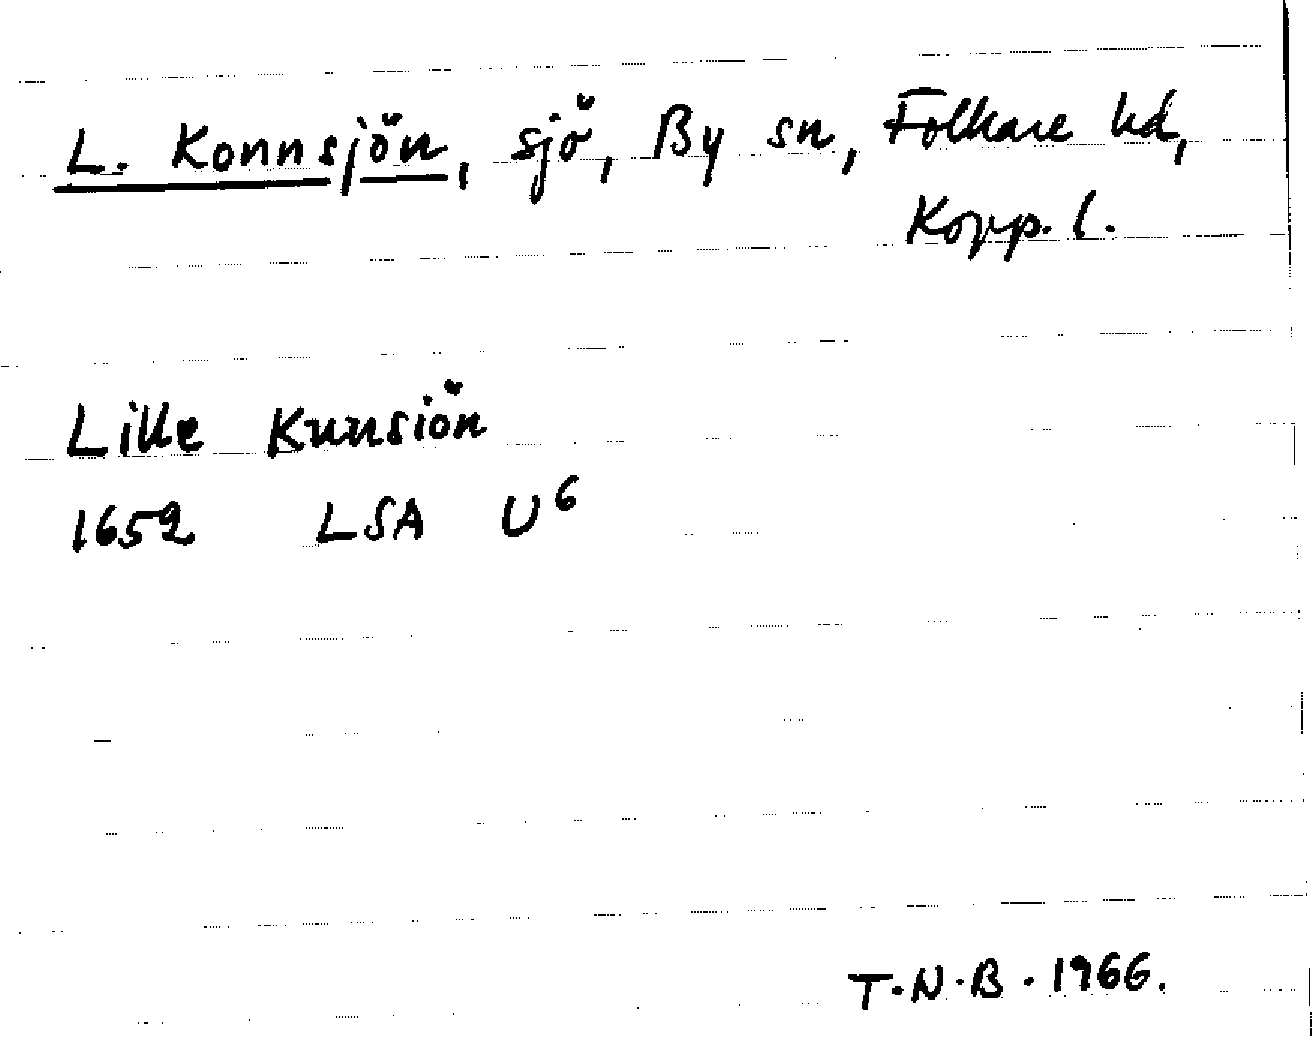 L. Konnsjön, sjö, By sn, Folkare hd,
Kopp. l.
Lille Kunsiön
1652 LSA U6
T.N.B. 1966.